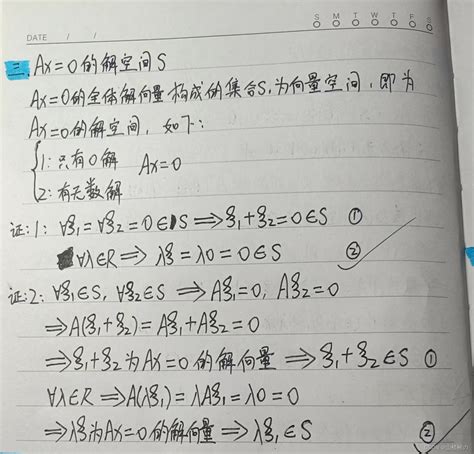 S M T W T F S
DATE / /
三. Ax=0的解空间S
Ax=0的全体解向量构成的集合S,为向量空间,即为
Ax=0的解空间,如下:
{1:只有0解 Ax=0
2:有无数解
证:1: ∀ξ₁=∀ξ₂=0∈S⟹ξ₁+ξ₂=0∈S ①
∀λ∈R⟹λξ=λ0=0∈S ②
证:2: ∀ξ₁∈S, ∀ξ₂∈S ⟹Aξ₁=0, Aξ₂=0
⟹A(ξ₁+ξ₂)=Aξ₁+Aξ₂=0
⟹ξ₁+ξ₂为Ax=0的解向量 ⟹ξ₁+ξ₂∈S ①
∀λ∈R⟹A(λξ₁)=λAξ₁=λ0=0
⟹λξ为Ax=0的解向量⟹λξ₁∈S ②